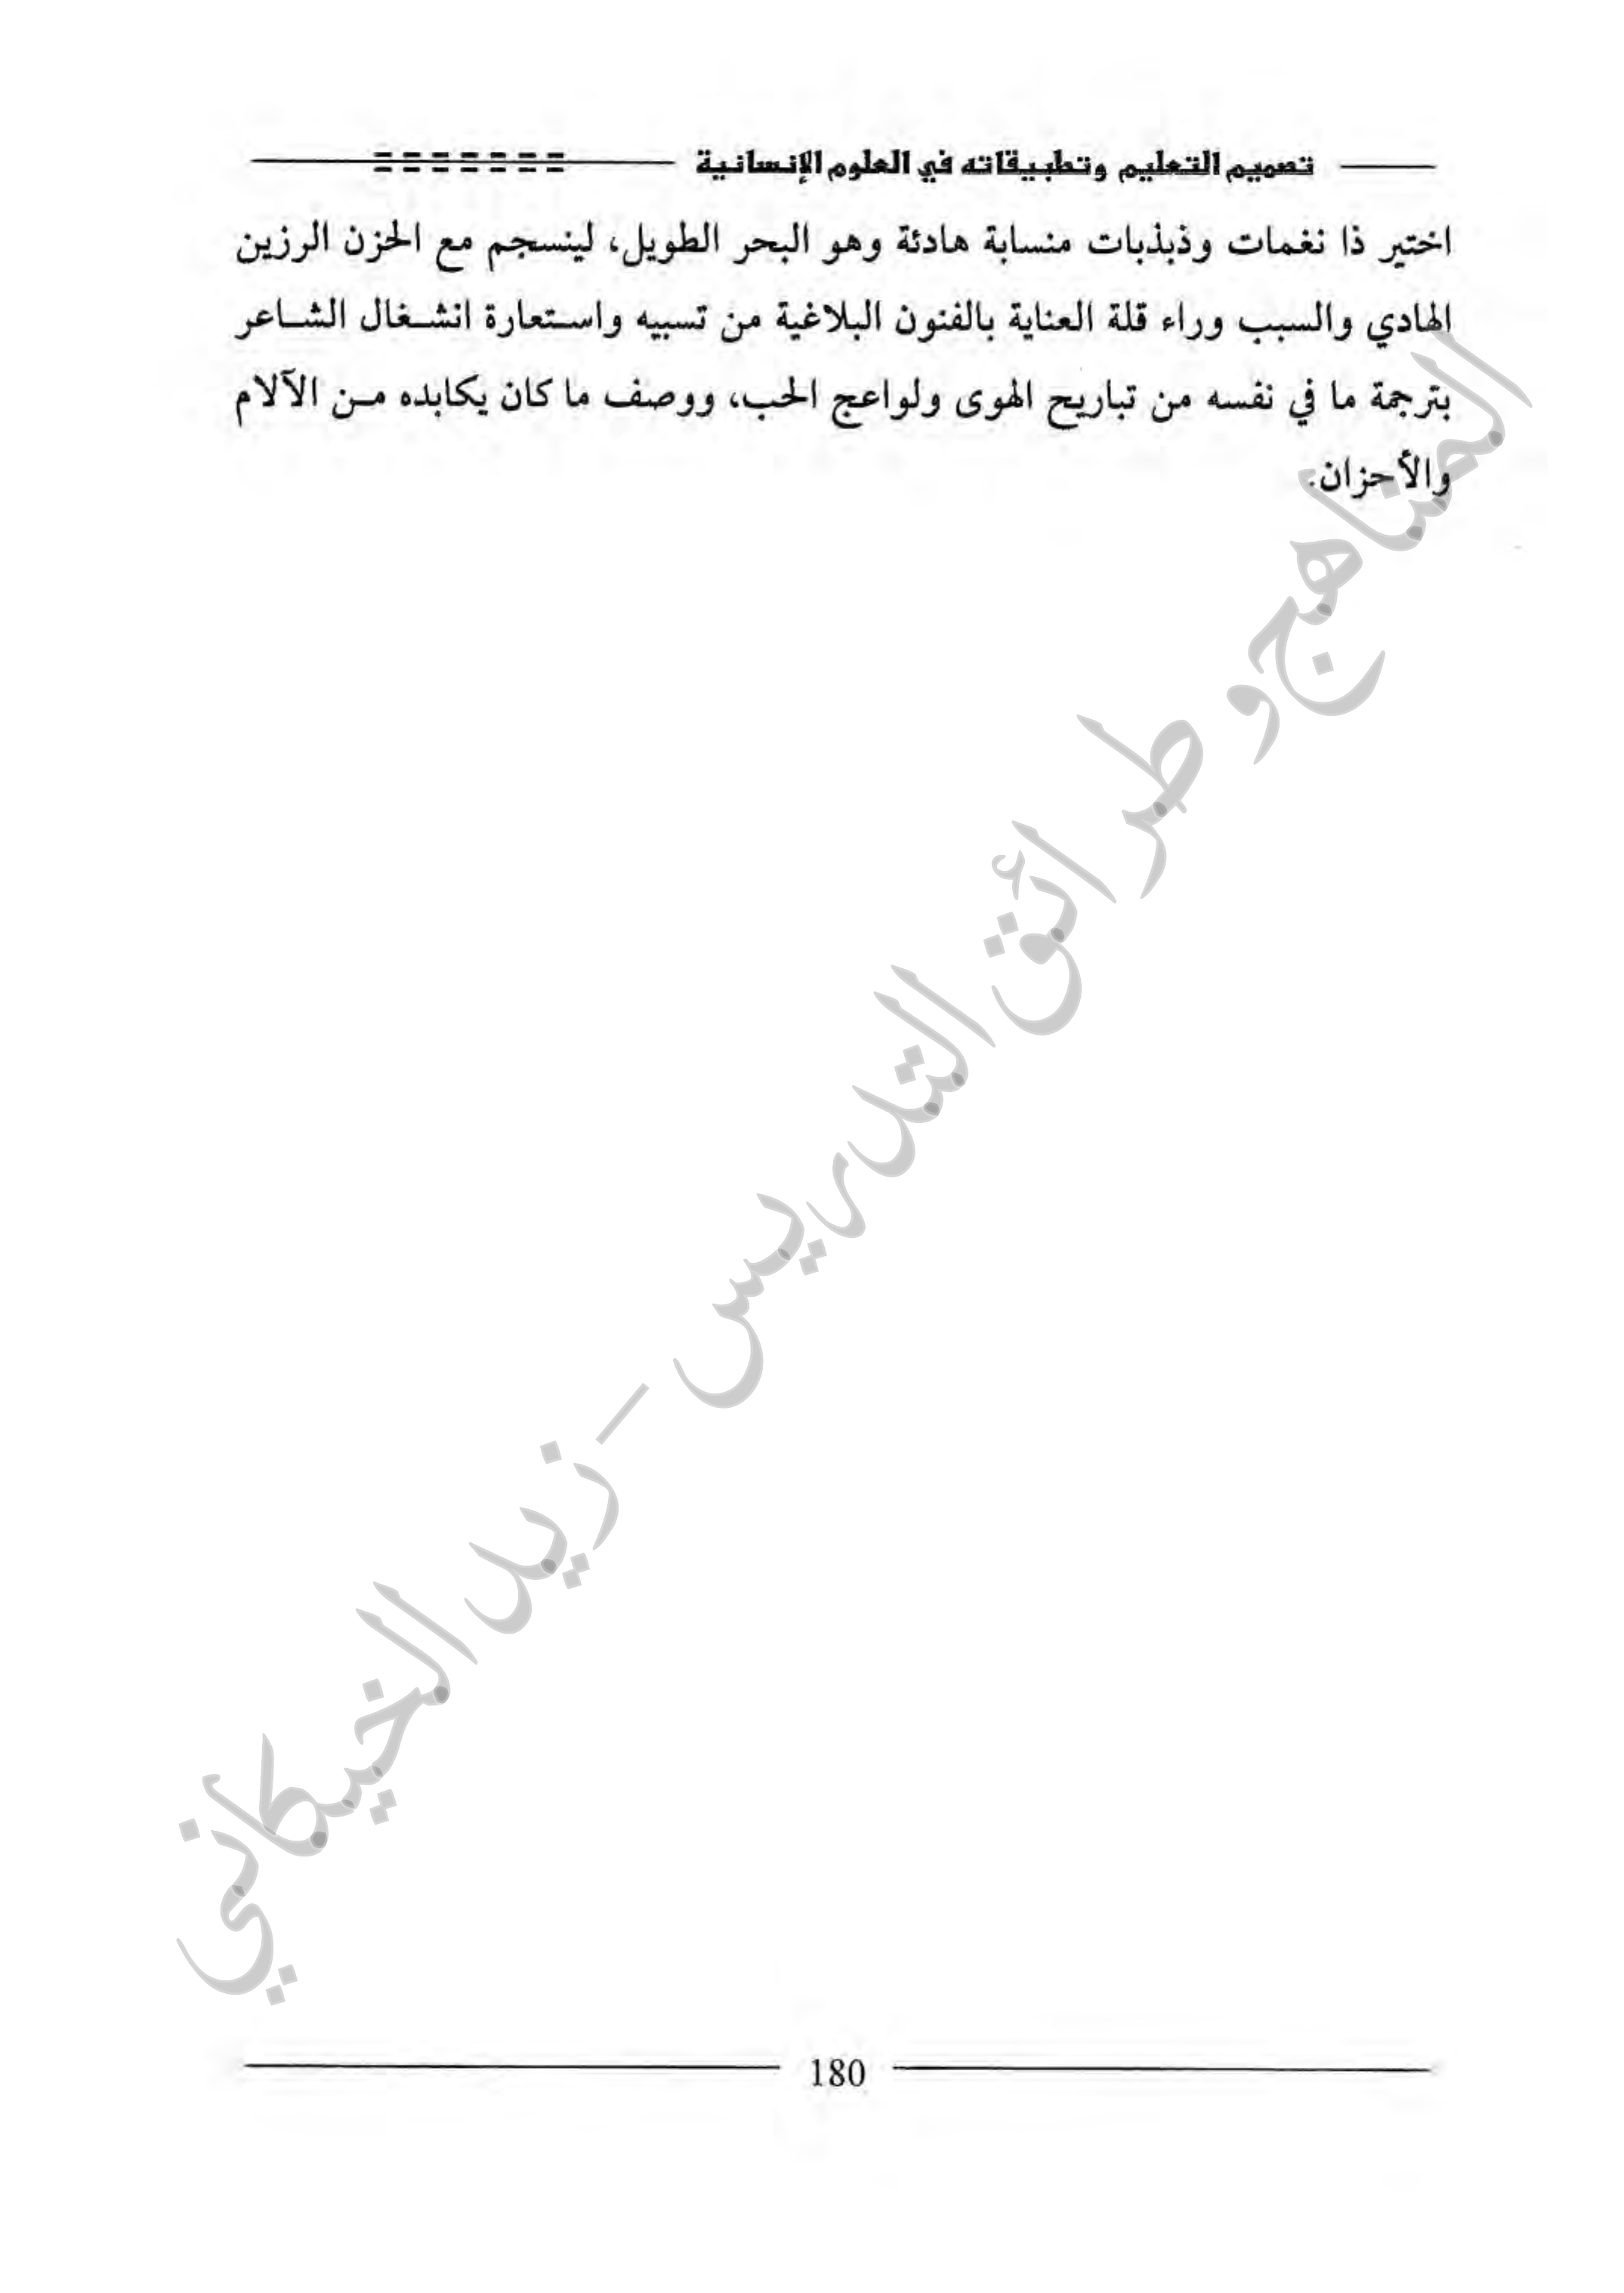 تصميم التعليم وتطبيقاته في العلوم الإنسانية
اختير ذا نغمات وذبذبات منسابة هادئة وهو البحر الطويل، لينسجم مع الحزن الرزين
الهادي والسبب وراء قلة العناية بالفنون البلاغية من تسبيه واستعارة انشغال الشاعر
بترجمة ما في نفسه من تباريح الهوى ولواعج الحب، ووصف ما كان يكابده من الآلام
والأحزان.
المناهج و طرائق التدريس - زيد الخيكاني
180